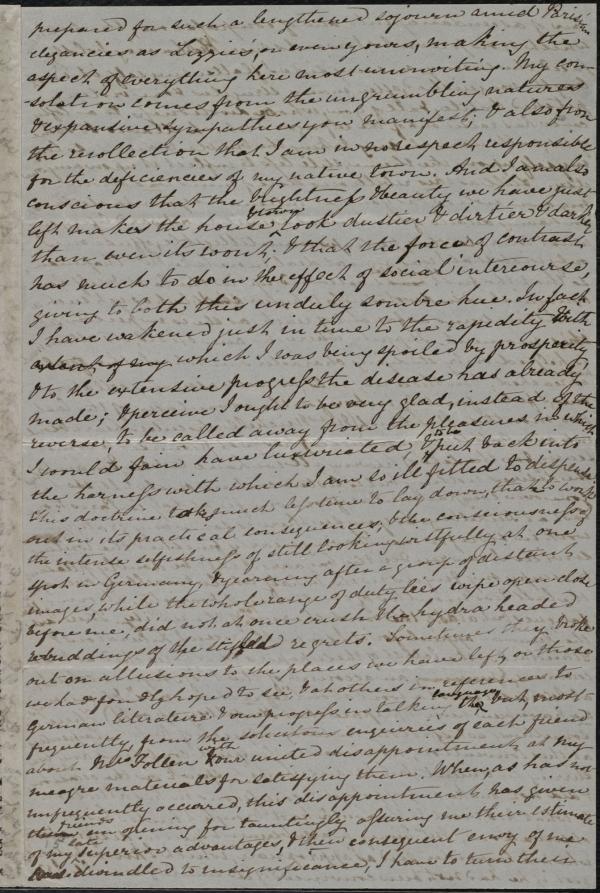 prepared for such a lengthened sojourn amid Parisian
elegancies as Lizzie's or even yours, making the
aspect of everything here most uninviting. My con-
-solation comes from the ungrumbling natures
& expansive sympathies you manifest; & also from
the recollection that I am in no respect responsible
for the deficiencies of my native town. And I am also
conscious that the brightness & beauty we have just
left makes the house & town look dustier & dirtier & darker
than even its wont, & that the force of contrast
has much to do in the effect of social intercourse,
giving to both this unduly sombre hue. In fact
I have wakened just in time to the rapidity with
extent of my which I was being spoiled by prosperity
& to the extensive progress the disease has already
made; & perceive I ought to be very glad, instead of the
reverse, to be called away from the pleasures in which
I would fain have luxuriated, & to put back into
the harness with which I am so ill fitted to dispense.
This doctrine takes much less time to lay down, than to work
out in its practical consequences, & the consciousness of
the intense selfishness of still looking wistfully at one
spot in Germany, & yearning after a group of distant
images, while the whole range of duty lies wide open close
before me, did not at once crush the hydra headed
rebuddings of the stifled regrets. Sometimes they broke
out on allusions to the places we have left, or those
we had fondly hoped to see, & at others in references to
German literature & our progress in talking the language but, most
frequently, from the solicitous enquiries of each friend
about Mrs Follen with our united disappointment at my
meagre materials for satisfying them. When, as has not
unfrequently occurred, this disappointment has given
friends an opening for tauntingly assuring me their estimate
of my late superior advantages, & their consequent envy of me
has dwindled to insignificance, I have to turn their